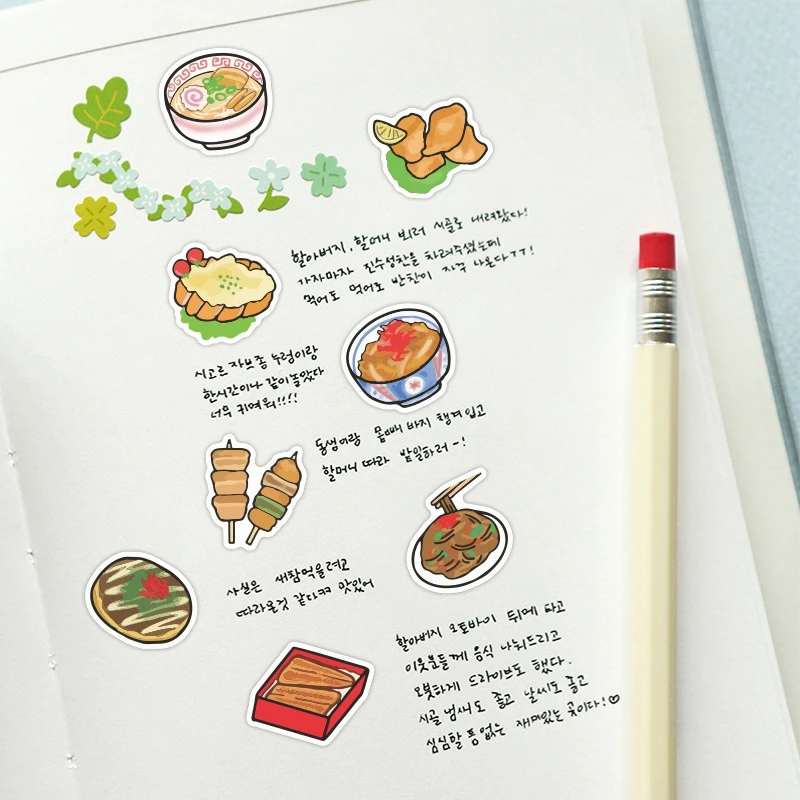 할아버지, 할머니 뵈러 시골로 내려왔다!
가자마자 진수성찬을 차려주셨는데
먹어도 먹어도 반찬이 자꾸 나온다ㅜㅜ!
시고르자브종 누렁이랑
한시간이나 같이 놀았다
너무 귀여워!!!!
동생이랑 몸빼 바지 챙겨 입고
할머니 따라 밭일하러~!
사실은 새참먹을려고
따라온것 같다ㅋㅋ 맛있어
할아버지 오토바이 뒤에 타고
이웃분들께 음식 나눠드리고
오붓하게 드라이브도 했다.
시골 냄새도 좋고 날씨도 좋고
심심할 틈 없는 재미있는 곳이다!♡